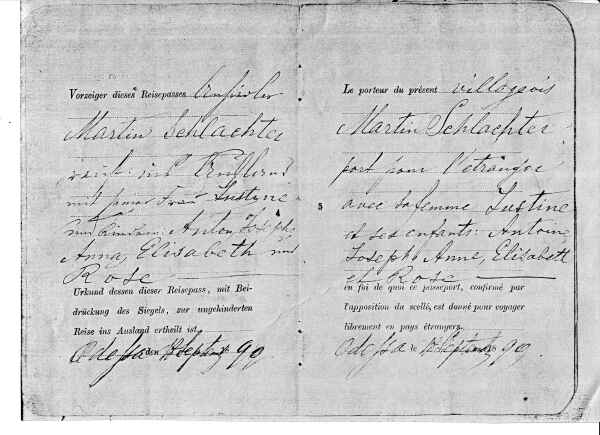 Vorzeiger dieses Reisepasses Ansiedler
Martin Schlachter
reist ins Ausland
mit seiner Frau Justine
und Kindern: Anton, Joseph,
Anna, Elisabeth und
Rose
Urkund dessen dieser Reisepass, mit Bei-
drückung des Siegels, zur ungehinderten
Reise ins Ausland ertheilt ist
Odessa den Sept 90
5
Le porteur du présent villageois
Martin Schlachter
part pour l'étranger
avec sa femme Justine
et ses enfants: Antoine
Joseph, Anne, Elisabeth
et Rose
en foi de quoi ce passeport, confirmé par
l'apposition du scellé, est donné pour voyager
librement en pays étrangers.
Odessa le Sept 90